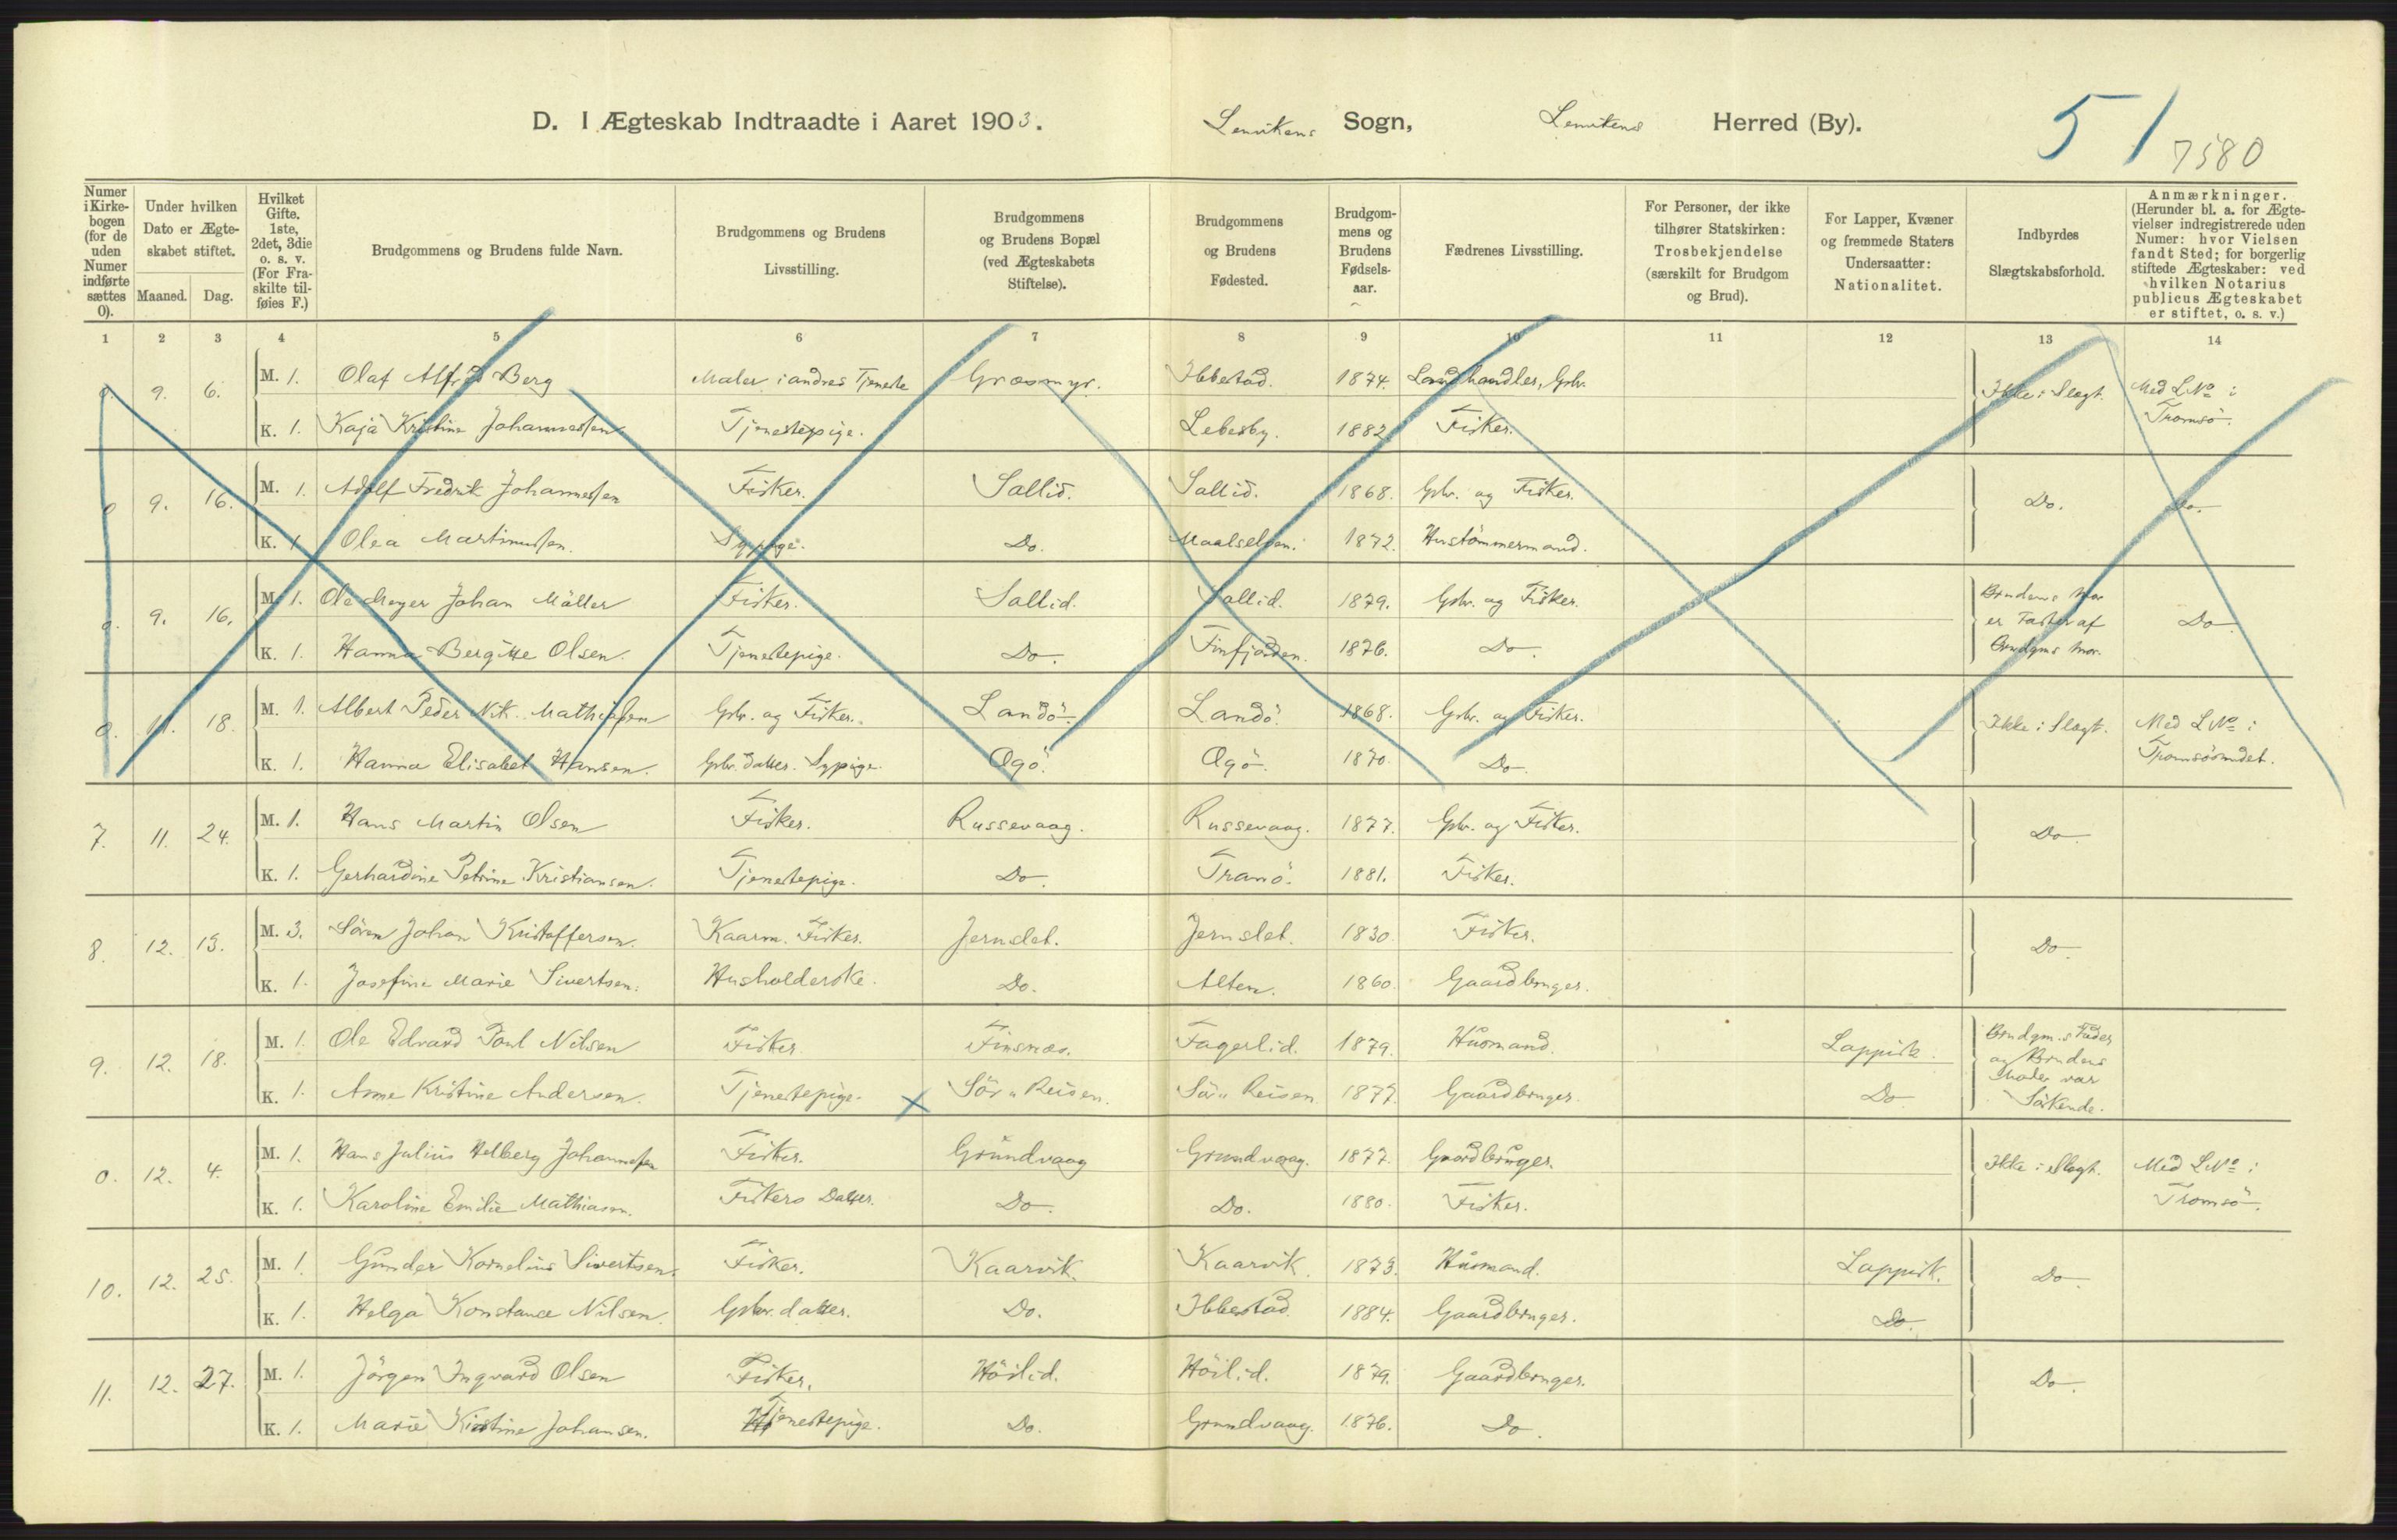 D. I Ægteskab Indtraadte i Aaret 1903. Lenvikens Sogn, Lenvikens Herred (By). 51
7580
Numer i Kirkebogen (for de uden Numer indførte sættes 0).
Under hvilken Dato er Ægteskabet stiftet.
Maaned. Dag.
Hvilket Gifte. 1ste, 2det, 3die o. s. v. (For Fraskilte tilføies F.)
Brudgommens og Brudens fulde Navn.
Brudgommens og Brudens Livsstilling.
Brudgommens og Brudens Bopæl (ved Ægteskabets Stiftelse).
Brudgommens og Brudens Fødested.
Brudgommens og Brudens Fødselsaar.
Fædrenes Livsstilling.
For Personer, der ikke tilhører Statskirken: Trosbekjendelse (særskilt for Brudgom og Brud).
For Lapper, Kvæner og fremmede Staters Undersaatter: Nationalitet.
Indbyrdes Slægtskabsforhold.
Anmærkninger. (Herunder bl. a. for Ægtevielser indregistrerede uden Numer: hvor Vielsen fandt Sted; for borgerlig stiftede Ægteskaber: ved hvilken Notarius publicus Ægteskabet er stiftet, o. s. v.)
1 2 3 4 5 6 7 8 9 10 11 12 13 14
0. 9. 6. M. 1. Olaf Alfred Berg Maler i andres Tjeneste Græsmyr. Ibbestad. 1874. Landhandler, Gbr. Ikke i Slægt. Med L.No i Tromsö.
K. 1. Kaja Kristine Johannessen Tjenestepige. Lebesby. 1882. Fisker.
0 9. 16. M. 1. Adolf Fredrik Johannessen Fisker. Sallid. Sallid. 1868. Gbr. og Fisker. Do. Do.
K. 1 Olea Martinussen. Sypige. Do. Maalselven. 1872. Hustömmermand.
0. 9. 16. M. 1. Ole Meyer Johan Möller Fisker. Sallid. Sallid. 1879. Gbr. og Fisker. Brudens Mor er Faster af Brudgms Mor. Do.
K. 1. Hanna Bergitte Olsen. Tjenestepige. Do. Finfjorden. 1876. Do.
0. 11. 18. M. 1. Albert Peder Nik. Mathiassen Gbr. og Fisker. Landö. Landö. 1868. Gbr. og Fisker. Ikke i Slægt. Med L.No i Tromsösundet.
K. 1. Hanna Elisabet Hansen. Gbr. datter. Sypige. Ogö. Ogö. 1870. Do.
7. 11. 24. M. 1. Hans Martin Olsen Fisker. Russevaag. Russevaag. 1877. Gbr. og Fisker. Do.
K. 1. Gerhardine Petrine Kristiansen. Tjenestepige. Do. Tranö. 1881. Fisker.
8. 12. 13. M. 3. Sören Johan Kristoffersen. Kaarm. Fisker. Jernslet. Jernslet. 1830. Fisker. Do.
K. 1. Josefine Marie Sivertsen. Husholderske. Do. Alten. 1860. Gaardbruger.
9. 12. 18. M. 1. Ole Edvard Paul Nilsen Fisker. Finsnæs. Fagerlid. 1879. Husmand. Lappisk. Brudgm.s Fader og Brudens Moder var Söskende.
K. 1. Anne Kristine Andersen. Tjenestepige. Sör-Reisen. Sör-Reisen. 1877. Gaardbruger. Do
0. 12. 4. M. 1. Hans Julius Helberg Johannessen Fisker. Grundvaag Grundvaag. 1877. Gaardbruger. Ikke i Slægt. Med L.No i Tromsö.
K. 1. Karoline Emilie Mathiasen. Fiskers Datter. Do. Do. 1880. Fisker.
10. 12. 25. M. 1. Gunder Kornelius Sivertsen. Fisker. Kaarvik. Kaarvik. 1873. Husmand. Lappisk. Do.
K. 1. Helga Konstance Nilsen. Gbr. datter. Do. Ibbestad. 1884. Gaardbruger. Do.
11. 12. 27. M. 1. Jörgen Ingvard Olsen Fisker. Höilid. Höilid. 1879. Gaardbruger. Do.
K. 1. Marie Kirstine Johansen. Tjenestepige. Do. Grundvaag. 1876. Do.